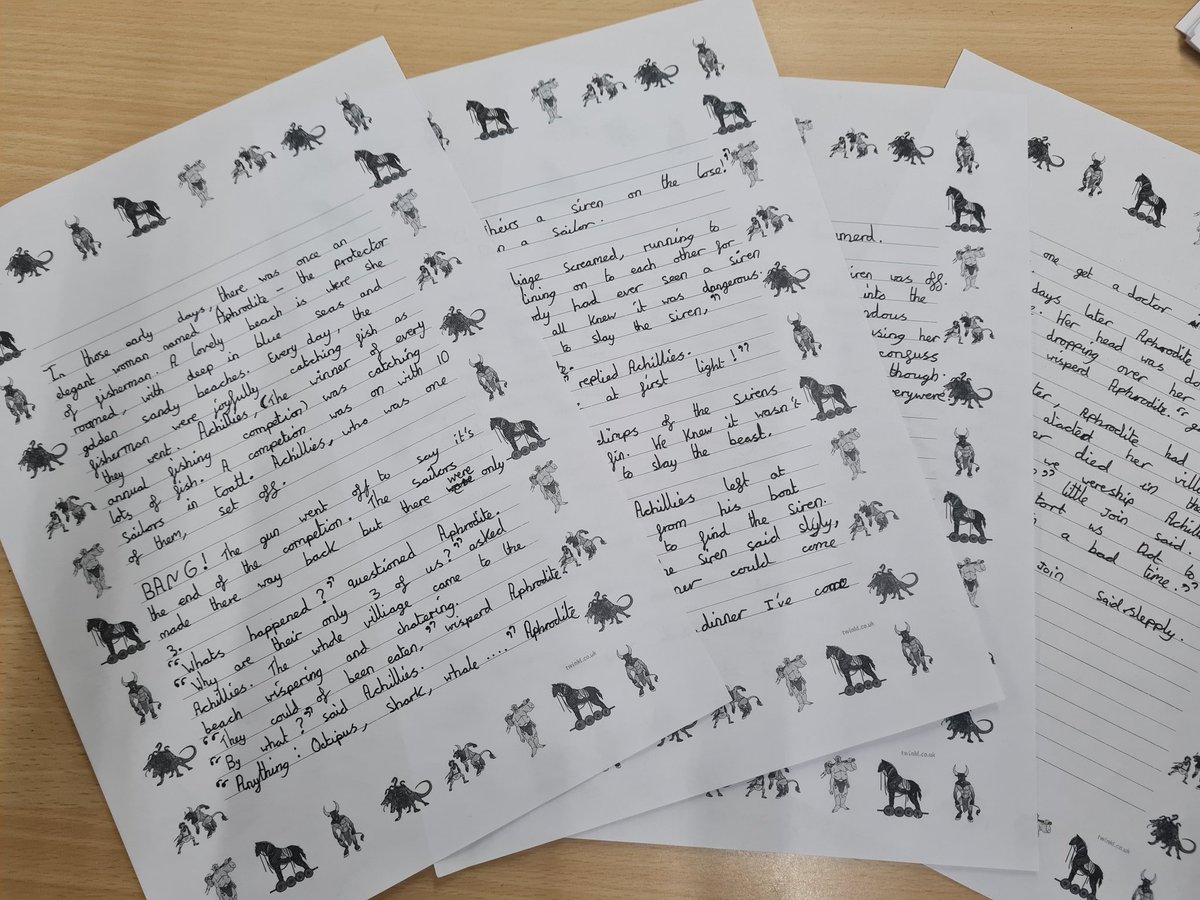 In those early days, there was once an
elegant woman named Aphrodite - the protector
of fisherman. A lovely beach is were she
roamed, with deep in blue seas and
golden sandy beaches. Every day, the
fisherman were joyfully catching fish as
they went. Achillies, (The winner of every
annual fishing competion) was catching
lots of fish. A competion was on with 10
Sailors in toatl. Achillies, who was one
of them, set off.
BANG! The gun went off to say it's
the end of the competion. The sailors
made there way back but there were only
3.
"Whats happened?" questioned Aphrodite.
"Why are their only 3 of us?" asked
Achillies. The whole villiage came to the
beach wispering and chatering.
"They could of been eaten," wisperd Aphrodite
"By what?" said Achillies.
"Anything: Octipus, shark, whale ...." Aphrodite
twinkl.co.uk
theirs a siren on the lose!"
a sailor.
screamed, running to
on to each other for
had ever seen a siren
all knew it was dangerous.
to slay the siren,"
replied Achillies.
at first light!"
of the Sirens
fin. He knew it wasn't
to slay the beast.
Achillies left at
from his boat
to find the siren.
Siren said slyly,
could come
dinner I've come
twinkl.co.uk
siren was off.
into the
her
confuss
though.
everywere
twinkl.co.uk
one get a doctor
days later Aphrodite
Her head was
dropping over her
wisperd Aphrodite.
Aphrodite had
atacted her
died in the
we wereship
little Join said.
us Dot to
a bad time."
Join said slepply.
twinkl.co.uk